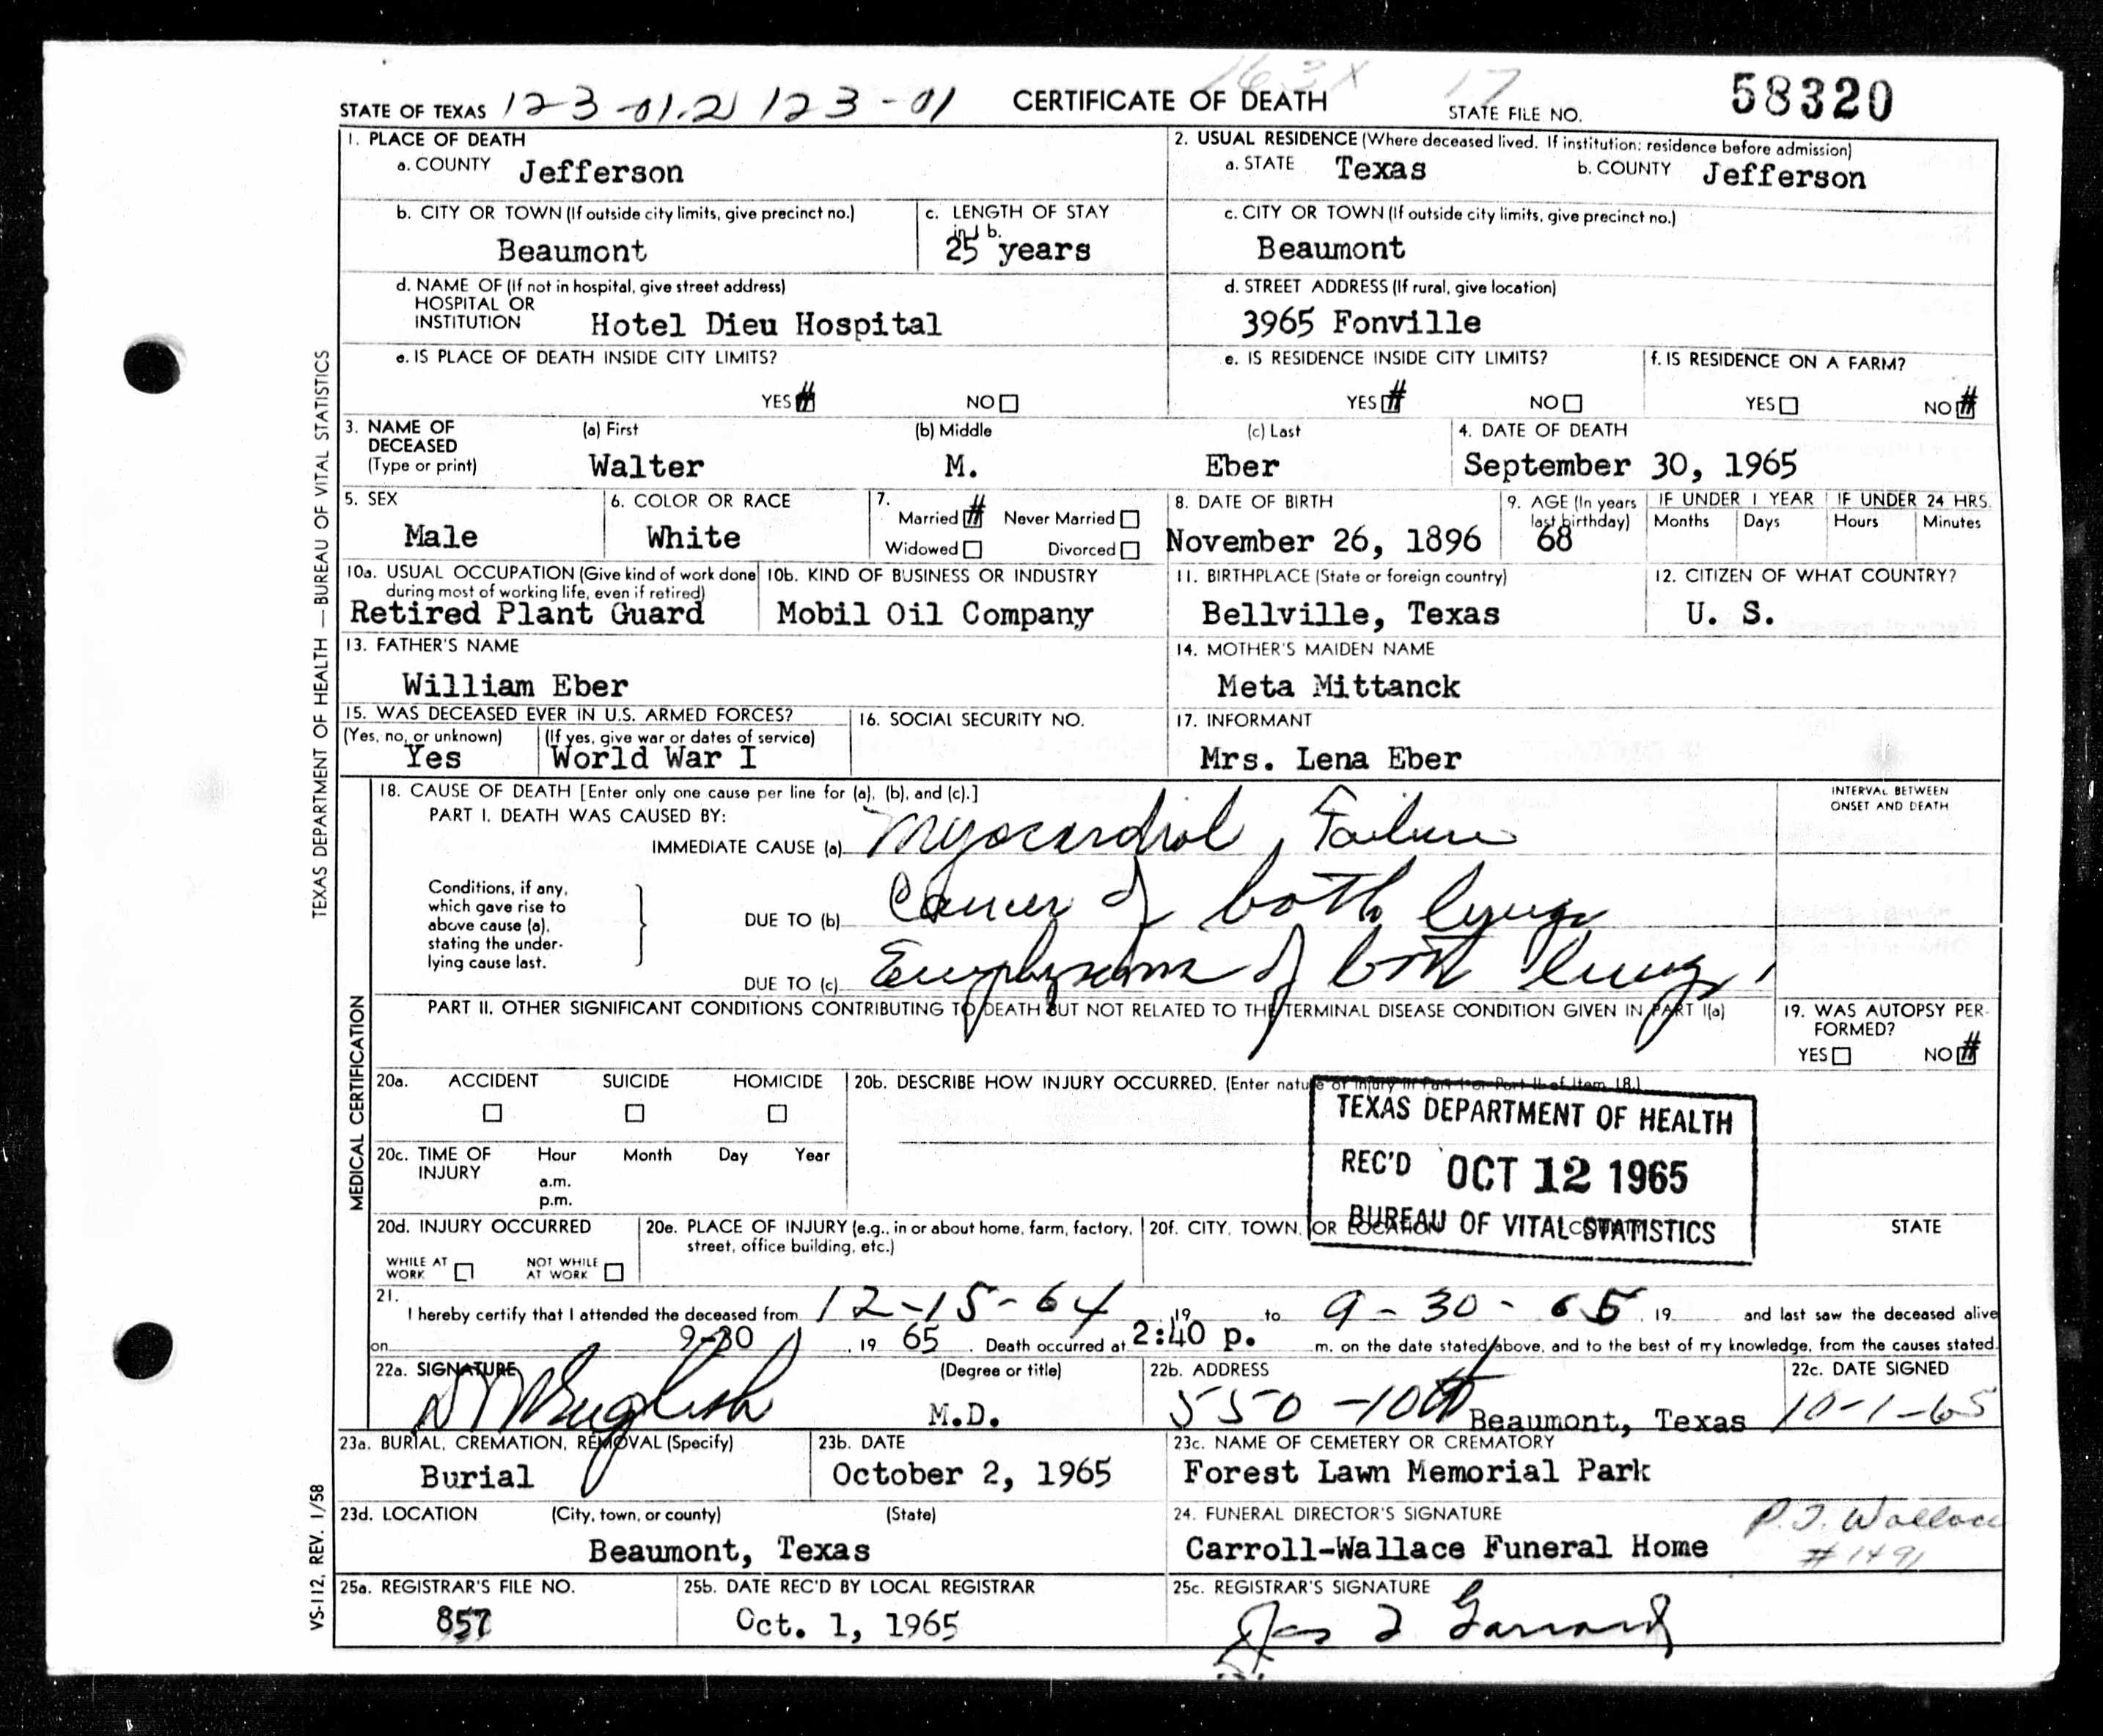 163X 17
STATE OF TEXAS 123-01.2 123-01 CERTIFICATE OF DEATH STATE FILE NO. 58320
1. PLACE OF DEATH
a. COUNTY Jefferson
2. USUAL RESIDENCE (Where deceased lived. If institution: residence before admission)
a. STATE Texas b. COUNTY Jefferson
b. CITY OR TOWN (If outside city limits, give precinct no.)
Beaumont
c. LENGTH OF STAY
in 1 b.
25 years
c. CITY OR TOWN (If outside city limits, give precinct no.)
Beaumont
d. NAME OF (If not in hospital, give street address)
HOSPITAL OR
INSTITUTION Hotel Dieu Hospital
d. STREET ADDRESS (If rural, give location)
3965 Fonville
e. IS PLACE OF DEATH INSIDE CITY LIMITS?
YES # NO
e. IS RESIDENCE INSIDE CITY LIMITS?
YES # NO
f. IS RESIDENCE ON A FARM?
YES NO #
3. NAME OF
DECEASED
(Type or print)
(a) First (b) Middle (c) Last
Walter M. Eber
4. DATE OF DEATH
September 30, 1965
5. SEX
Male
6. COLOR OR RACE
White
7.
Married # Never Married
Widowed Divorced
8. DATE OF BIRTH
November 26, 1896
9. AGE (In years
last birthday)
68
IF UNDER 1 YEAR IF UNDER 24 HRS.
Months Days Hours Minutes
10a. USUAL OCCUPATION (Give kind of work done
during most of working life, even if retired)
Retired Plant Guard
10b. KIND OF BUSINESS OR INDUSTRY
Mobil Oil Company
11. BIRTHPLACE (State or foreign country)
Bellville, Texas
12. CITIZEN OF WHAT COUNTRY?
U. S.
13. FATHER'S NAME
William Eber
14. MOTHER'S MAIDEN NAME
Meta Mittanck
15. WAS DECEASED EVER IN U.S. ARMED FORCES?
(Yes, no, or unknown) (If yes, give war or dates of service)
Yes World War I
16. SOCIAL SECURITY NO.
17. INFORMANT
Mrs. Lena Eber
18. CAUSE OF DEATH [Enter only one cause per line for (a), (b), and (c).]
INTERVAL BETWEEN
ONSET AND DEATH
PART I. DEATH WAS CAUSED BY:
IMMEDIATE CAUSE (a) Myocardial Failure
Conditions, if any,
which gave rise to
above cause (a),
stating the under-
lying cause last.
DUE TO (b) Cancer of both lungs
DUE TO (c) Emphysema of both lungs
PART II. OTHER SIGNIFICANT CONDITIONS CONTRIBUTING TO DEATH BUT NOT RELATED TO THE TERMINAL DISEASE CONDITION GIVEN IN PART I(a)
19. WAS AUTOPSY PER-
FORMED?
YES NO #
20a. ACCIDENT SUICIDE HOMICIDE
20b. DESCRIBE HOW INJURY OCCURRED. (Enter nature of injury in Part I or Part II of Item 18.)
TEXAS DEPARTMENT OF HEALTH
REC'D OCT 12 1965
BUREAU OF VITAL STATISTICS
20c. TIME OF
INJURY
Hour Month Day Year
a.m.
p.m.
20d. INJURY OCCURRED
WHILE AT
WORK
NOT WHILE
AT WORK
20e. PLACE OF INJURY (e.g., in or about home, farm, factory,
street, office building, etc.)
20f. CITY, TOWN, OR LOCATION COUNTY STATE
21.
I hereby certify that I attended the deceased from 12-15-64, 19 to 9-30-65, 19 and last saw the deceased alive
on 9-30, 19 65. Death occurred at 2:40 p. m. on the date stated above, and to the best of my knowledge, from the causes stated.
22a. SIGNATURE (Degree or title)
English M.D.
22b. ADDRESS
550-10th Beaumont, Texas
22c. DATE SIGNED
10-1-65
23a. BURIAL, CREMATION, REMOVAL (Specify)
Burial
23b. DATE
October 2, 1965
23c. NAME OF CEMETERY OR CREMATORY
Forest Lawn Memorial Park
23d. LOCATION (City, town, or county) (State)
Beaumont, Texas
24. FUNERAL DIRECTOR'S SIGNATURE
Carroll-Wallace Funeral Home
P.J. Wallace
#1491
25a. REGISTRAR'S FILE NO.
857
25b. DATE REC'D BY LOCAL REGISTRAR
Oct. 1, 1965
25c. REGISTRAR'S SIGNATURE
Garrard
TEXAS DEPARTMENT OF HEALTH — BUREAU OF VITAL STATISTICS
MEDICAL CERTIFICATION
VS-112, REV. 1/58